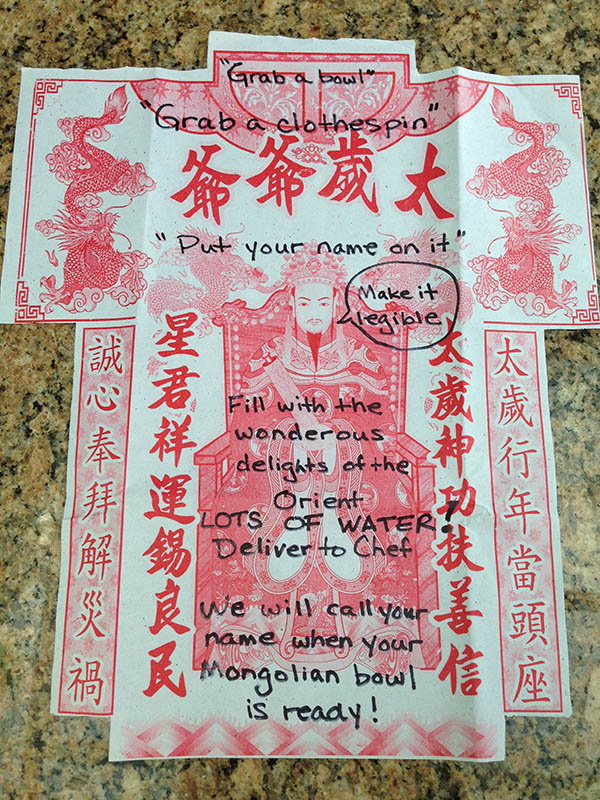 "Grab a bowl"
"Grab a clothespin"
爺爺歲太
"Put your name on it"
Make it
legible
太歲行年當頭座
太歲神功扶善信
星君祥運錫良民
誠心奉拜解災禍
Fill with the
wonderous
delights of the
Orient
LOTS OF WATER!
Deliver to Chef
We will call your
name when your
Mongolian bowl
is ready!